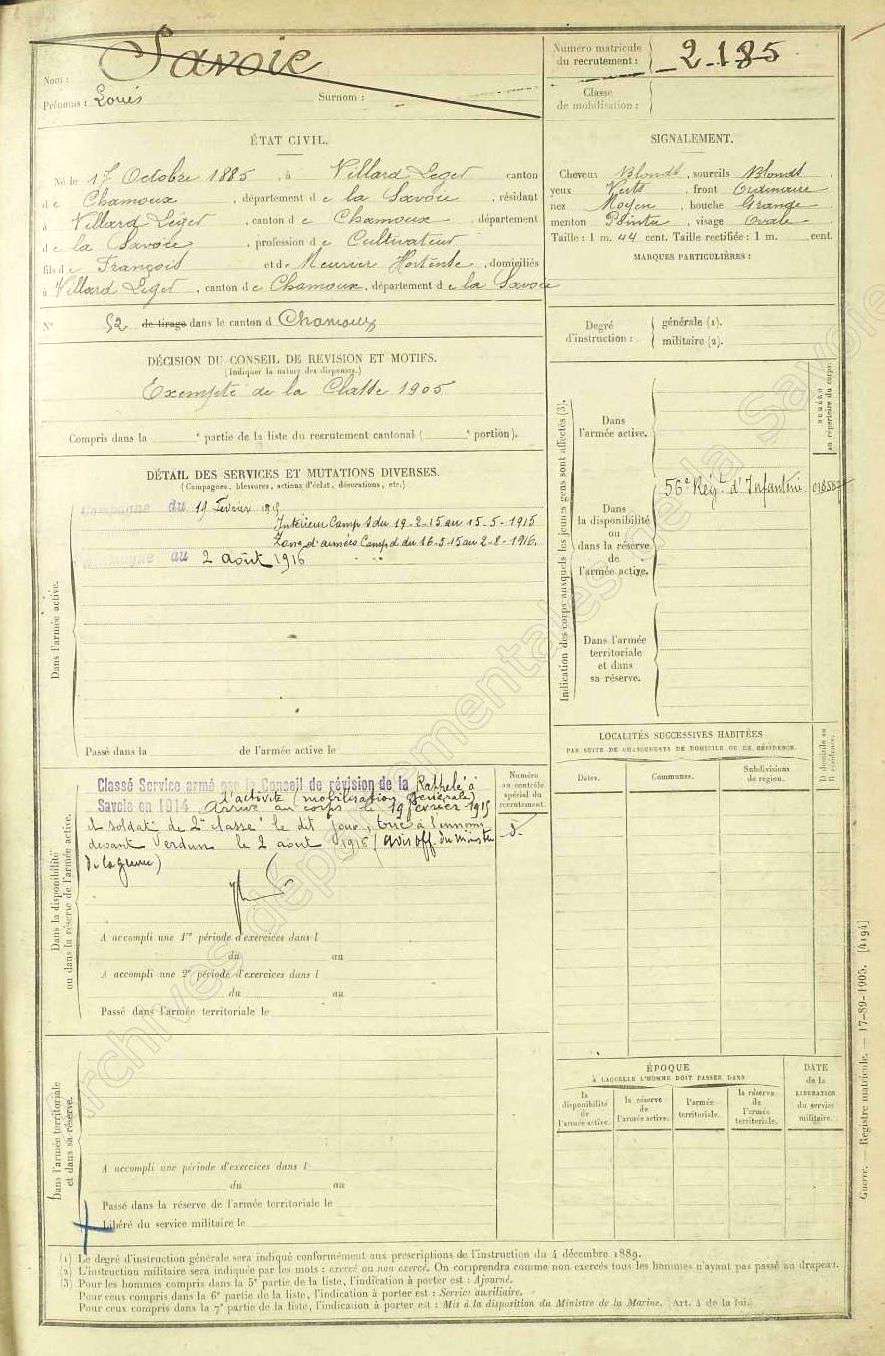 Nom : Savoie
Prénoms : Louis Surnom :
Numéro matricule
du recrutement : 2185
Classe
de mobilisation :
ÉTAT CIVIL.
Né le 17 Octobre 1885, à Villard Leger canton
de Chamoux, département de la Savoie, résidant
à Villard Léger, canton de Chamoux département
de la Savoie, profession de Cultivateur
fils de François et de Meunier Hortense, domiciliés
à Villard Leger, canton de Chamoux, département de la Savoie
N° 52 de tirage dans le canton d Chamoux
SIGNALEMENT.
Cheveux Blonds, sourcils Blonds
yeux Verts, front Ordinaire
nez Moyen, bouche Grande
menton Pointu, visage Ovale
Taille : 1 m. 44 cent. Taille rectifiée : 1 m. cent.
MARQUES PARTICULIÈRES :
Degré
d'instruction :
générale (1).
militaire (2).
DÉCISION DU CONSEIL DE REVISION ET MOTIFS.
(Indiquer la nature des dispenses.)
Exempté de la Classe 1905
Compris dans la e partie de la liste du recrutement cantonal ( e portion).
DÉTAIL DES SERVICES ET MUTATIONS DIVERSES.
(Campagnes, blessures, actions d'éclat, décorations, etc.)
Dans l'armée active.
Campagne du 19 Février 1915
Intérieur Camp S du 19-2-15 au 15-5-1915
Zone d'armées Camp d du 16-5-15 au 2-8-1916.
au 2 août 1916
Passé dans la de l'armée active le
Indication des corps auxquels les jeunes gens sont affectés (3).
NUMÉRO
au répertoire du corps.
Dans
l'armée active.
56e Régt d'Infanterie
Dans
la disponibilité
ou
dans la réserve
de
l'armée active.
Dans l'armée
territoriale
et dans
sa réserve.
Dans la disponibilité
ou dans la réserve de l'armée active.
Numéro
au contrôle
spécial du
recrutement.
Classé Service armé par le Conseil de révision de la
Savoie en 1914. Rappelé à
l'activité (mobilisation générale)
Arrivé au corps le 19 février 1915
soldat de 2e classe le dit jour, tué à l'ennemi
devant Verdun le 2 août 1916 (avis off. du ministre
de la guerre)
A accompli une 1re période d'exercices dans l
du au
A accompli une 2e période d'exercices dans l
du au
Passé dans l'armée territoriale le
LOCALITÉS SUCCESSIVES HABITÉES
PAR SUITE DE CHANGEMENTS DE DOMICILE OU DE RÉSIDENCE.
D domicile ou
R résidence.
Dates. Communes. Subdivisions
de région.
Dans l'armée territoriale
et dans sa réserve.
A accompli une période d'exercices dans l
du au
Passé dans la réserve de l'armée territoriale le
Libéré du service militaire le
ÉPOQUE
À LAQUELLE L'HOMME DOIT PASSER DANS
la
disponibilité
de
l'armée active.
la réserve
de
l'armée active.
l'armée
territoriale.
la réserve
de
l'armée
territoriale.
DATE
de la
LIBÉRATION
du service
militaire.
(1) Le degré d'instruction générale sera indiqué conformément aux prescriptions de l'instruction du 4 décembre 1889.
(2) L'instruction militaire sera indiquée par les mots : exercé ou non exercé. On comprendra comme non exercés tous les hommes n'ayant pas passé au drapeau.
(3) Pour les hommes compris dans la 5e partie de la liste, l'indication à porter est : Ajourné.
Pour ceux compris dans la 6e partie de la liste, l'indication à porter est : Service auxiliaire.
Pour ceux compris dans la 7e partie de la liste, l'indication à porter est : Mis à la disposition du Ministre de la Marine. Art. 4 de la loi.
Guerre. — Registre matricule. — 17-89-1905. [4194]
Archives départementales de la Savoie